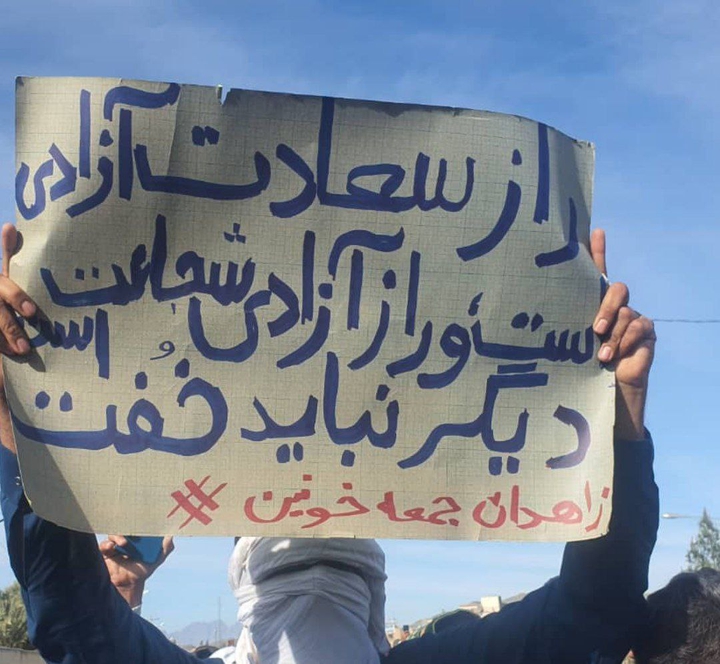 راز سعادت آزادی
ست، و راز آزادی شجاعت است
دیگر نباید خُفت
زاهدان جمعه خونین #